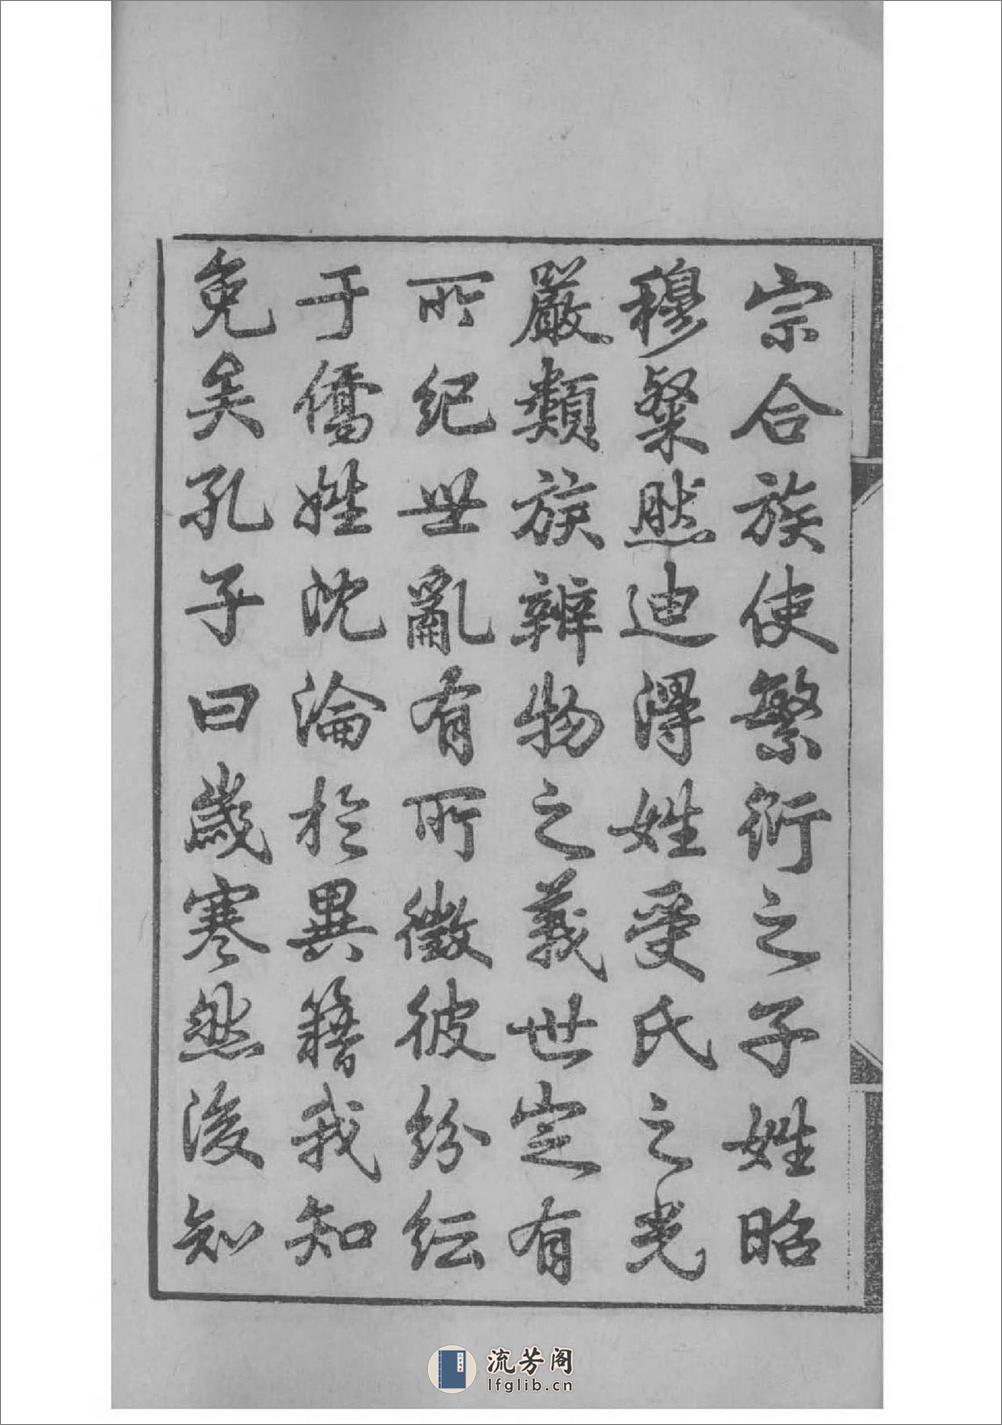 宗合族使繁衍之子姓昭
穆粲然迪得姓受氏之光
嚴類族辨物之義世定有
所紀世亂有所徵彼紛紜
于僑姓沈淪於異籍我知
免矣孔子曰歲寒然後知
流芳阁
lfglib.cn